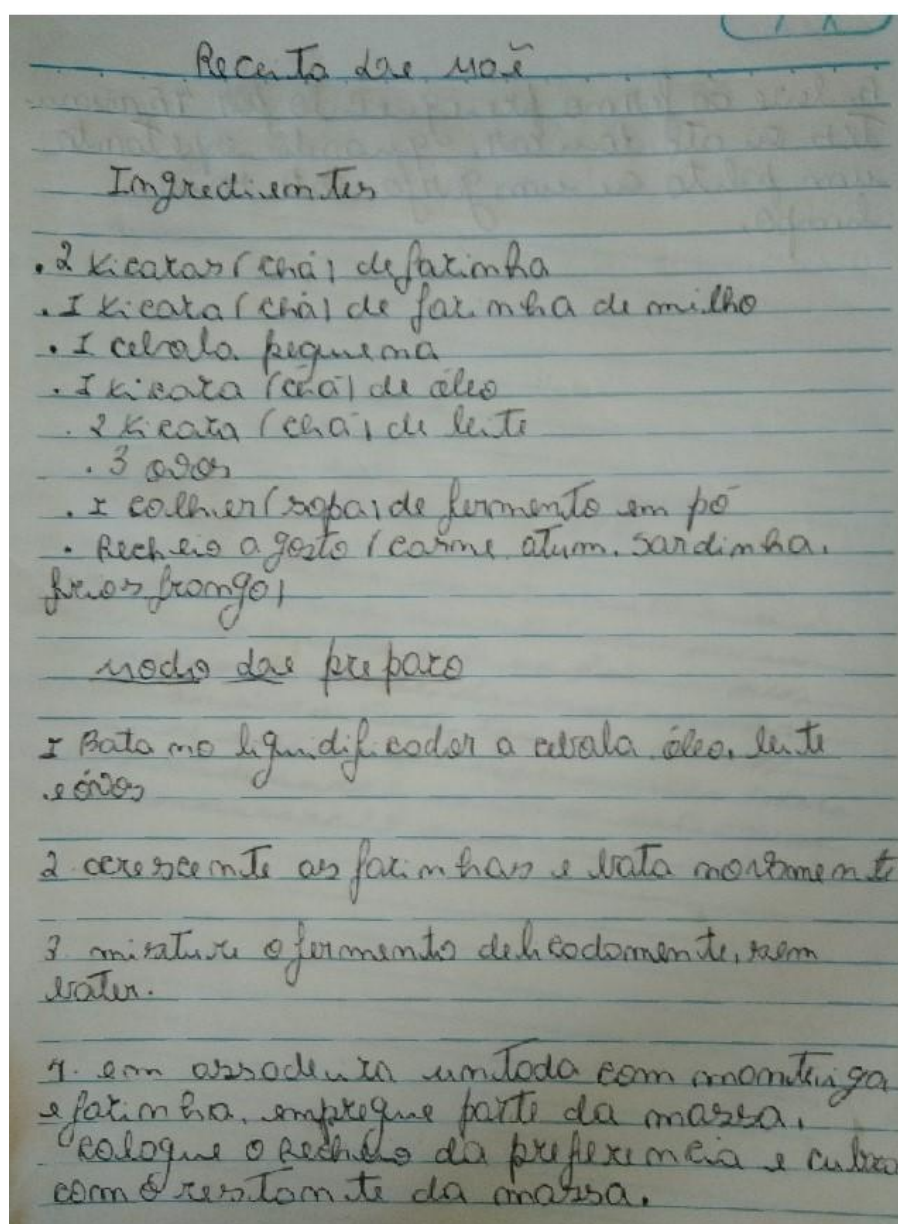 Receita dae mãe
Ingredientes
. 2 xicaras (chá) de farinha
. I xicara (chá) de farinha de milho
. I cebola pequena
. I xicara (chá) de óleo
. 2 xicara (chá) de leite
. 3 ovos
. I colher (sopa) de fermento em pó
. Recheio a gosto (carne, atum. sardinha,
frios frango)
modo dae preparo
I Bata no liquidificador a cebola óleo, leite
e óvos
2. acrescente as farinhas e bata novamente
3. misture o fermento delicadamente, sem
bater.
4. em assadeira untada com manteiga
e farinha, empregue parte da massa,
coloque o recheio da preferencia e cubra
com o restante da massa.